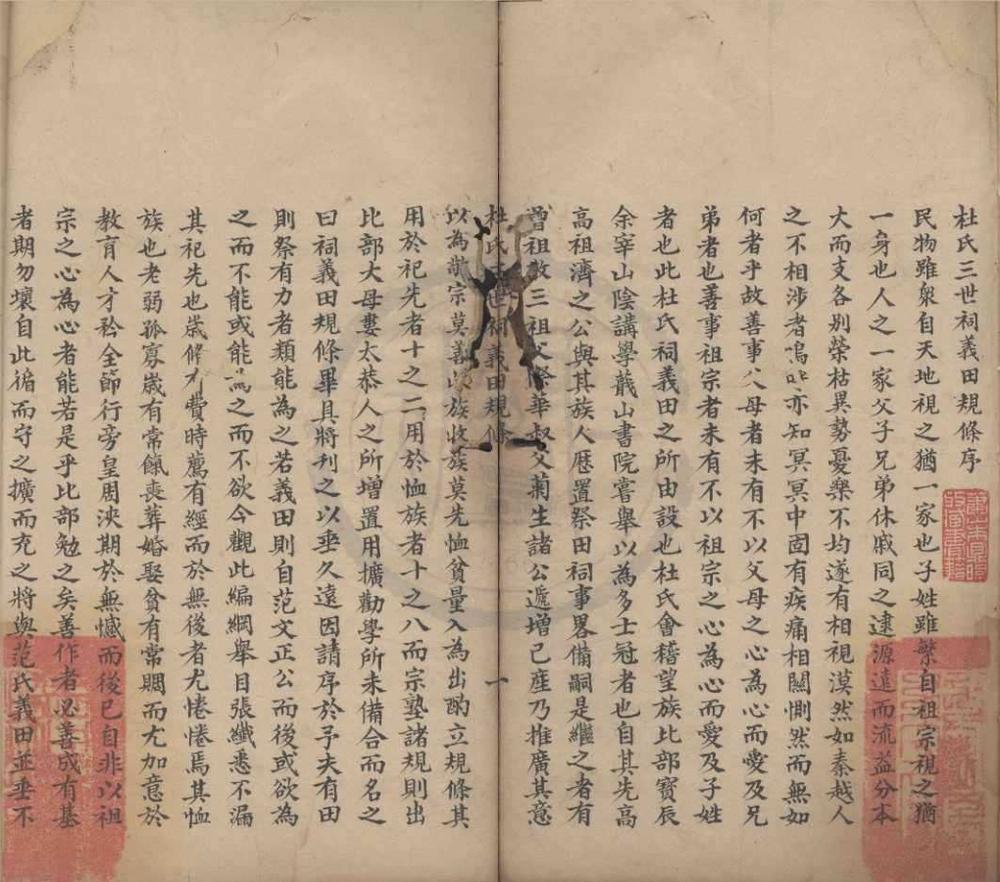 杜氏三世祠義田規條序
民物雖衆自天地視之猶一家也子姓雖繁自祖宗視之猶
一身也人之一家父子兄弟休戚同之逮源遠而流益分本
大而支各別榮枯異勢憂樂不均遂有相視漠然如秦越人
之不相涉者嗚呼亦知冥冥中固有疾痛相關惻然而無如
何者乎故善事父母者未有不以父母之心為心而愛及兄
弟者也善事祖宗者未有不以祖宗之心為心而愛及子姓
者也此杜氏祠義田之所由設也杜氏會稽望族比部寳辰
余宰山陰講學蕺山書院嘗舉以為多士冠者也自其先高
高祖濟之公與其族人厯置祭田祠事畧備嗣是繼之者有
曾祖敦三祖父際華叔父菊生諸公遞增已産乃推廣其意
杜氏三世祠義田規條 一
以為敬宗莫善收族收族莫先恤貧量入為出酌立規條其
用於祀先者十之二用於恤族者十之八而宗塾諸規則出
比部大母婁太恭人之所增置用擴勸學所未備合而名之
曰祠義田規條畢具將刋之以垂久遠因請序於予夫有田
則祭有力者類能為之若義田則自范文正公而後或欲為
之而不能或能為之而不欲今觀此編綱舉目張纖悉不漏
其祀先也歲修有費時薦有經而於無後者尤惓惓焉其恤
族也老弱孤寡歲有常餼喪葬婚娶貧有常賙而尤加意於
教育人才矜全節行旁皇周浹期於無憾而後已自非以祖
宗之心為心者能若是乎比部勉之矣善作者必善成有基
者期勿壞自此循而守之擴而充之將與范氏義田並垂不